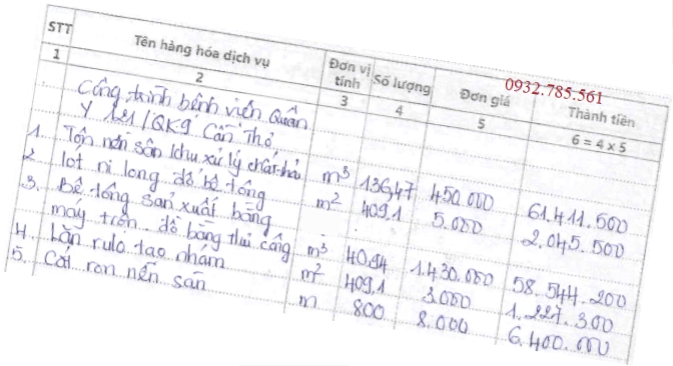 STT Tên hàng hóa dịch vụ Đơn vị tính Số lượng Đơn giá Thành tiền
0932.785.561
1 2 3 4 5 6 = 4 x 5
Công trình bệnh viện Quân
Y 121/QK9 Cần Thơ
1. Tôn nền sân khu xử lý chất thải m³ 136,47 450.000 61.411.500
2 lót ni long đổ bê tông m² 409.1 5.000 2.045.500
3. Bê tông sản xuất bằng
máy trộn. đổ bằng thủ công m³ 40.94 1.430.000 58.544.200
4. Lăn rulo tạo nhám m² 409.1 3.000 1.227.300
5. Cắt ron nền sân m 800 8.000 6.400.000